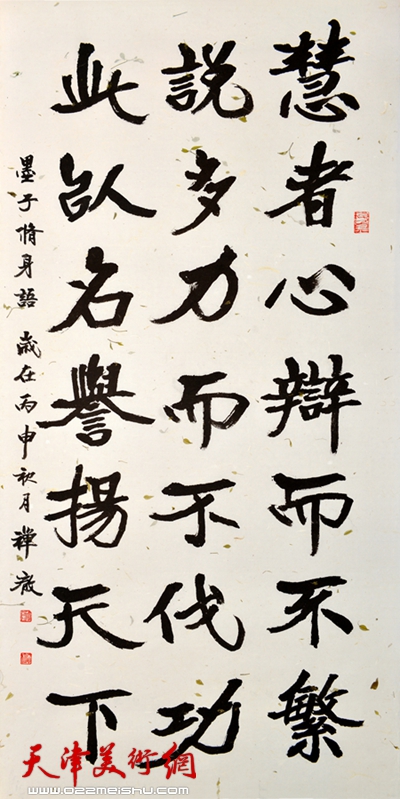 慧者心辯而不繁
說多力而不伐功
此以名譽揚天下
墨子脩身語 歲在丙申秋月 禪
天津美術網
www.022meishu.com